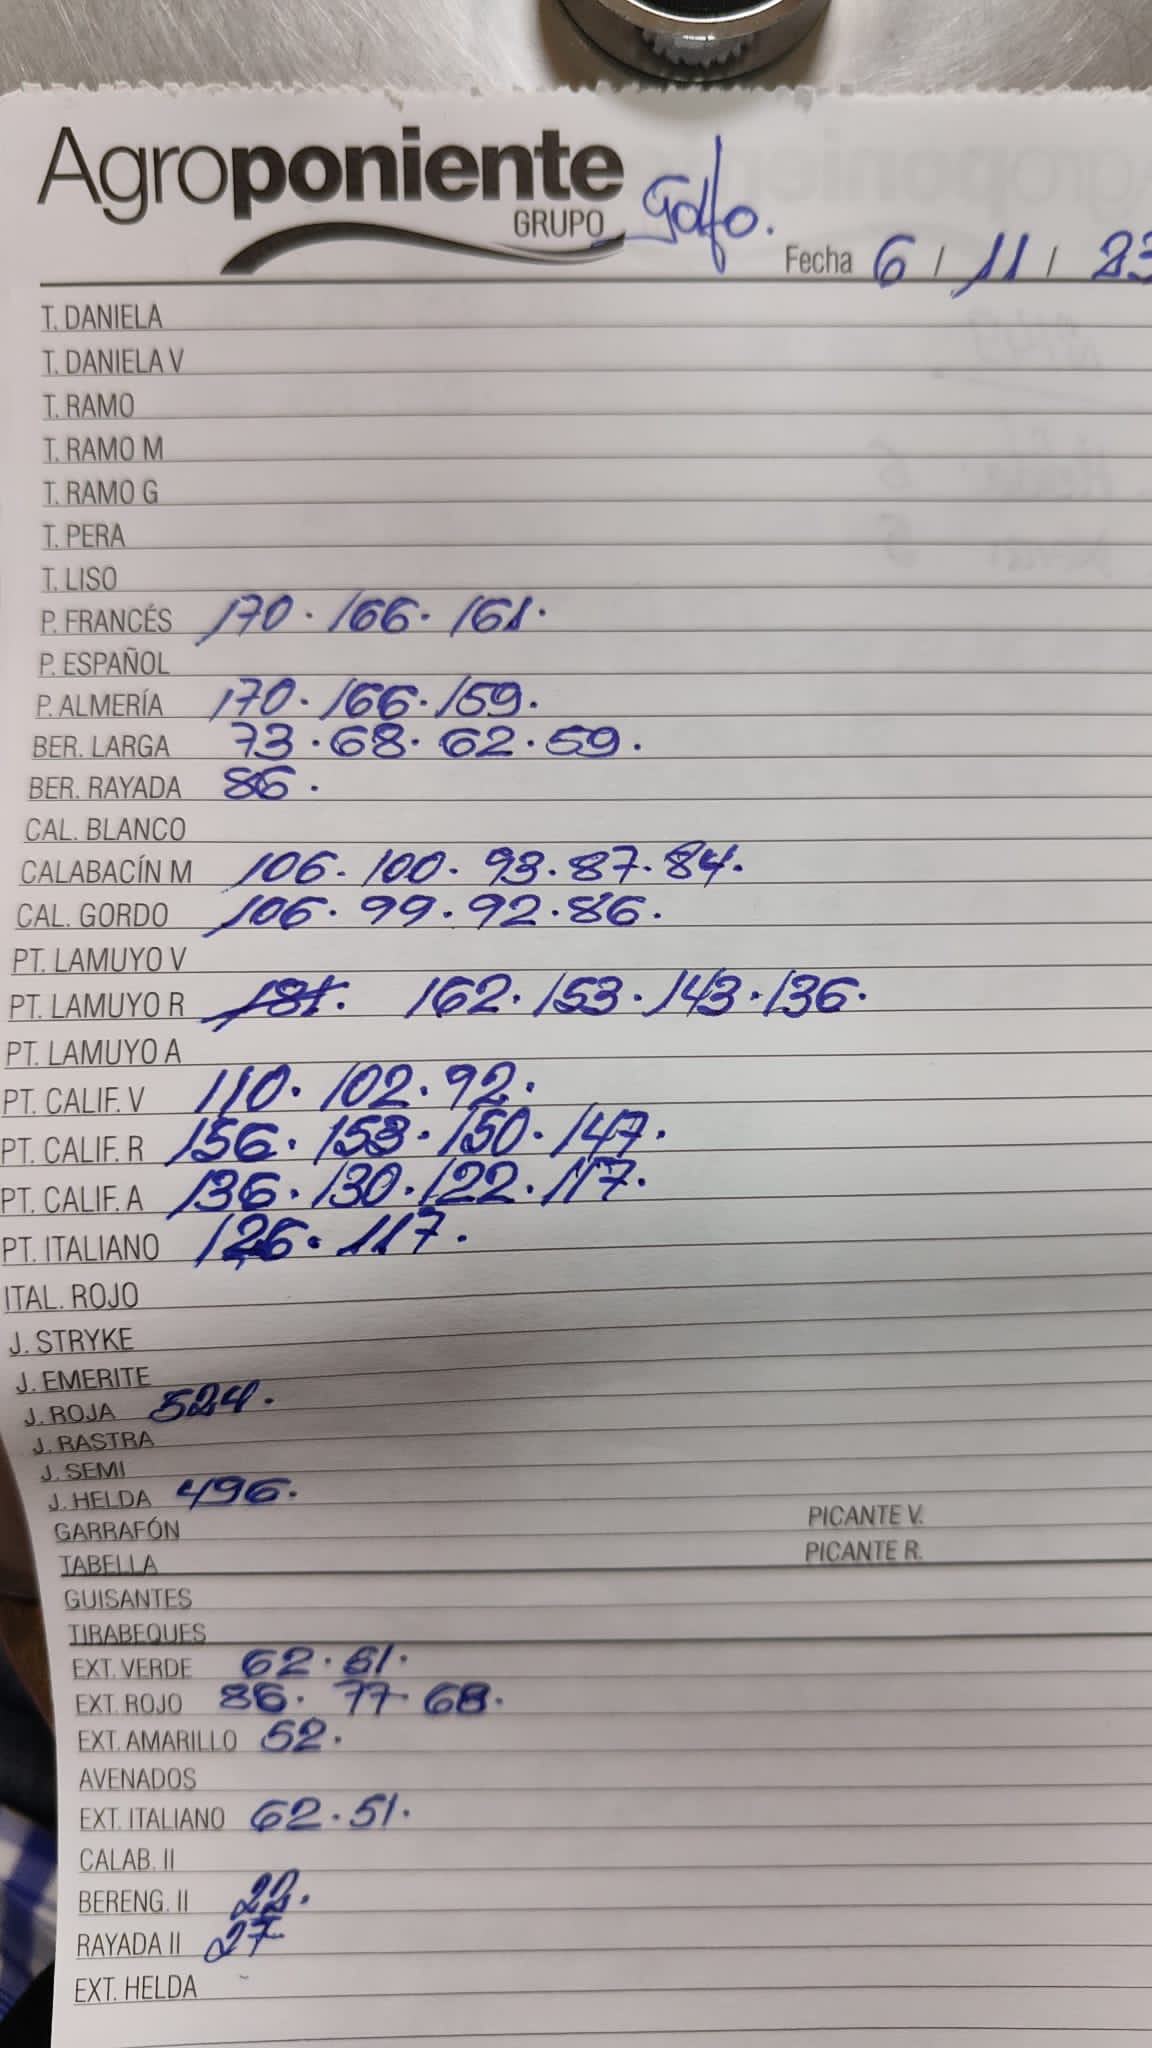 Agroponiente
GRUPO Golfo.
Fecha 6 / 11 / 23
T. DANIELA
T. DANIELA V
T. RAMO
T. RAMO M
T. RAMO G
T. PERA
T. LISO
P. FRANCÉS 170. 166. 161.
P. ESPAÑOL
P. ALMERÍA 170. 166. 159.
BER. LARGA 73. 68. 62. 59.
BER. RAYADA 86.
CAL. BLANCO
CALABACÍN M 106. 100. 93. 87. 84.
CAL. GORDO 106. 99. 92. 86.
PT. LAMUYO V
PT. LAMUYO R 181. 162. 153. 143. 136.
PT. LAMUYO A
PT. CALIF. V 110. 102. 92.
PT. CALIF. R 156. 153. 150. 147.
PT. CALIF. A 136. 130. 122. 117.
PT. ITALIANO 126. 117.
ITAL. ROJO
J. STRYKE
J. EMERITE
J. ROJA 524.
J. RASTRA
J. SEMI
J. HELDA 496.
GARRAFÓN PICANTE V.
TABELLA PICANTE R.
GUISANTES
TIRABEQUES
EXT. VERDE 62. 61.
EXT. ROJO 86. 77 68.
EXT. AMARILLO 52.
AVENADOS
EXT. ITALIANO 62. 51.
CALAB. II
BERENG. II 22.
RAYADA II 27
EXT. HELDA